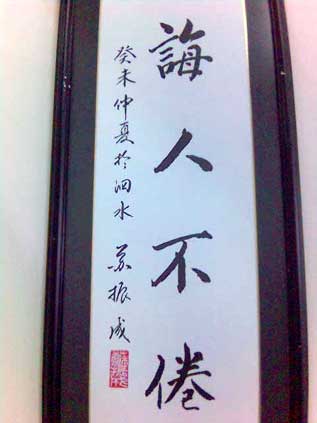 誨人不倦
癸未仲夏於泗水 苏振成